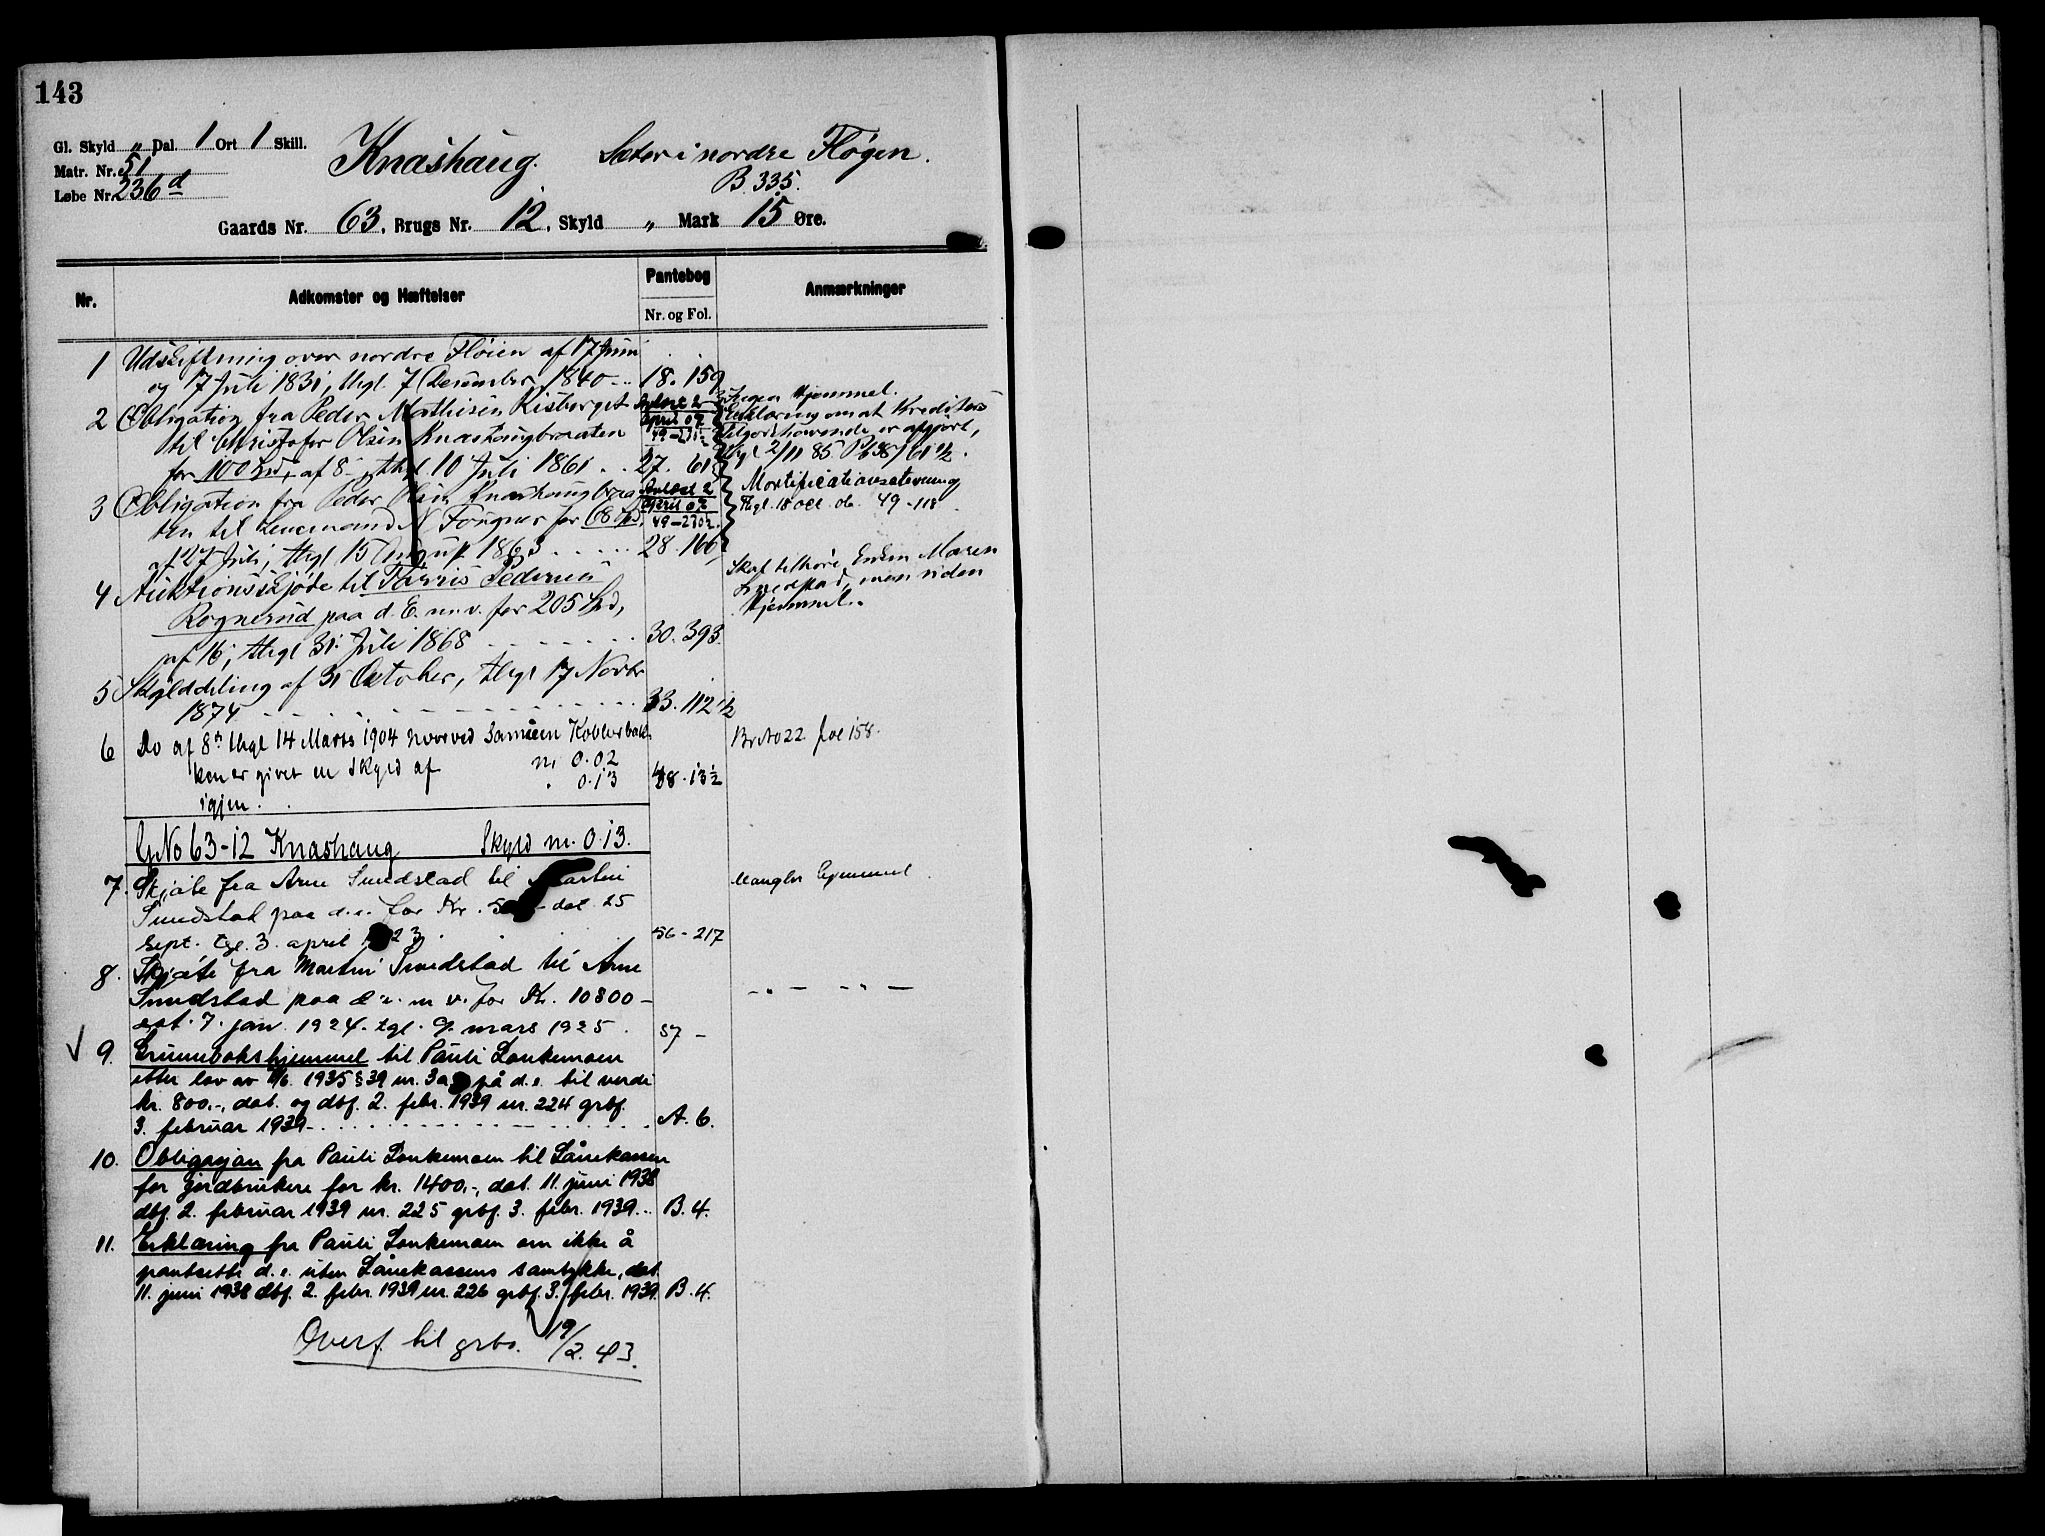 143
Gl. Skyld „ Dal. 1 Ort 1 Skill.
Matr. Nr. 51
Løbe Nr. 236 d
Knashaug. Sæter i nordre Fløgen.
B. 335.
Gaards Nr. 63, Brugs Nr. 12, Skyld „ Mark 15 Øre.
Nr.
Adkomster og Hæftelser
Pantebog
Nr. og Fol.
Anmærkninger
1 Udskiftning over nordre Fløien af 17 Juni
og 17 Juli 1831, thgl. 7 December 1840 18. 159
2 Obligation fra Peder Mathisen Risberget
til Christofer Olsen Knashaugbraaten
for 100 Spd, af 8, thgl 10 Juli 1861 27. 61
Avlæst 2
April 07
49-230½
Ingen Hjemmel.
Erklæring om at Kreditors
Tilgodehavende er afgjort,
thgl 2/11 85 Pb 38/61½.
3 Obligation fra Peder Olsen Knashaugbraa
ten til Lensmand N Fougner for 68 Spd,
af 27 Juli, thgl 15 August 1863 28. 166
Avlæst 2
April 07
49-230½.
Mortificationsstevning
Thgl. 18 oct. 06. 49-118
4 Auktionsskjøde til Torris Pedersen
Rognerud paa d. E. m. v. for 205 Spd,
af 16, thgl 31 Juli 1868 30. 393.
Skal tilhøre Enken Maren
Smedstad, men uden
Hjemmel.
5 Skylddeling af 31 October, thgl 17 Novbr
1874 33. 112½
6 Do af 8n thgl 14 Marts 1904 hvorved
ken er givet en Skyld af m. 0.02
igjen. . 0.13 48. 13½
Br No 22 fol 158.
G No 63-12 Knashaug Skyld m. 0.13.
7. Skjøte fra Arne Smedstad til Martin
Smedstad paa d.e. for Kr. dat. 25
sept. tgl. 3. april 23. 56-217
Mangler hjemmel.
8. Skjøte fra Martin Smedstad til Arne
Smedstad paa d.e. m v. for Kr. 10800-
dat. 7. jan. 1924. tgl. 9. mars 1925. 57 -
- „ - - „ -
9. Grunnbokshjemmel til Pauli Lonkemoen
etter lov av 7/6. 1935 § 39 nr. 3a på d.e. til verdi
kr. 800.-, dat. og dbf. 2. febr. 1939 nr. 224 grbf.
3. februar 1939 A. 6.
10. Obligasjon fra Pauli Lonkemoen til Lånekassen
for jordbrukere for kr. 1400.-, dat. 11. juni 1938
dbf. 2. februar 1939 nr. 225 grbf. 3. febr. 1939. B. 4.
11. Erklæring fra Pauli Lonkemoen om ikke å
pantsette d.e. uten Lånekassens samtykke, dat.
11. juni 1938 dbf. 2. febr. 1939 nr. 226 grbf. 3. febr. 1939. B. 4.
Overf. til grbo. 19/2. 43.